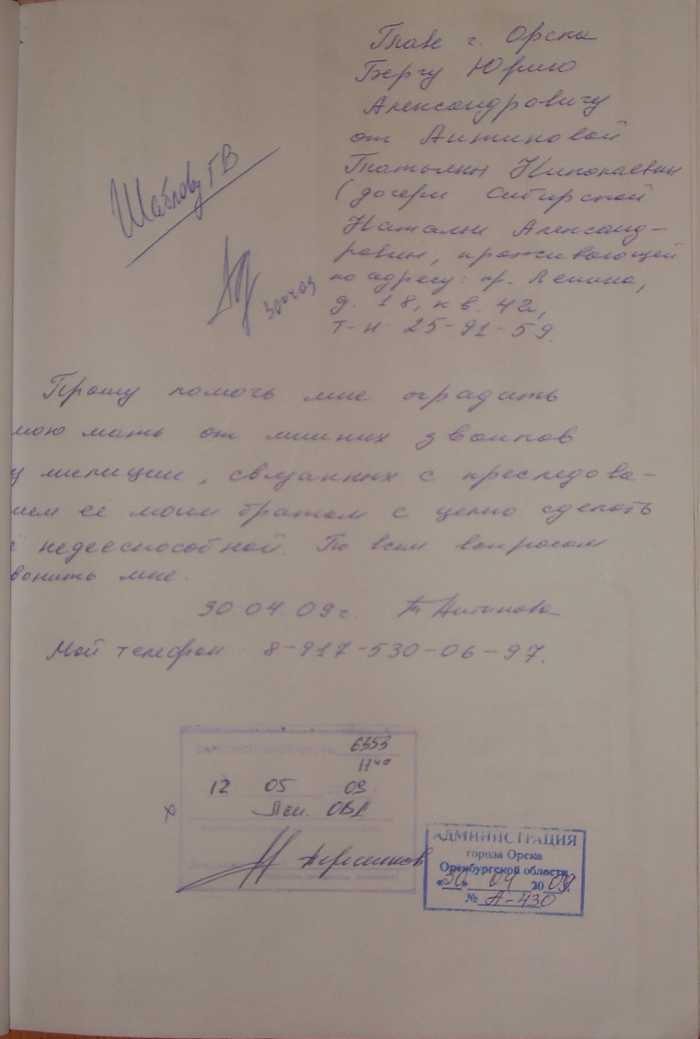 Главе г. Орска
Бергу Юрию
Александровичу
от Антиповой
Татьяны Николаевны
(дочери Сибирской
Натальи Александ-
ровны, проживающей
по адресу: пр. Ленина,
д. 18, кв. 42,
т-н 25-91-59.
Шаблову ГВ
30 04 09
Прошу помочь мне оградить
мою мать от лишних звонков
у милиции, связанных с преследова-
нием её моим братом с целью сделать
недееспособной. По всем вопросам
вонить мне.
30.04.09 г. Т Антипова
Мой телефон 8-917-530-06-97.
6353
17 40
12 05 09
Лен. ОВД
АДМИНИСТРАЦИЯ
города Орска
Оренбургской области
«30» 04 2009
№ А-430